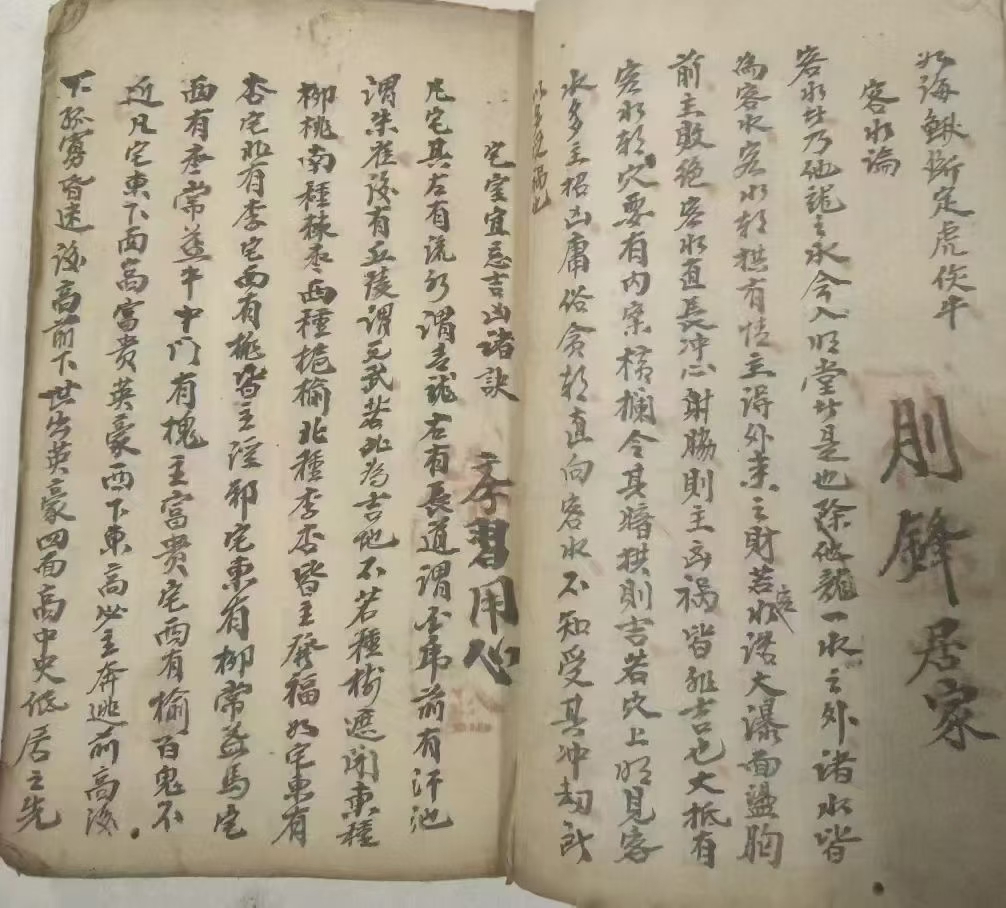 如海鰍斷定虎牛
則鋒居家
客水論
客水者乃他龍之水会入明堂者是也除他龍一水之外諸水皆
為客水客水朝拱有情主得外来之財若客水大瀑面盪胸
前主敗绝客水直長冲心射脇則主凶祸皆非吉也大抵有
客水朝穴要有内案横欄令其暗拱則吉若穴上明見客
水多主招凶庸俗貪朝直向客水不知受其冲劫所
以多祸也
宅室宜忌吉凶诸訣
習用心
凡宅其左有流水謂青龍右有長道謂白乕前有汗池
謂朱雀後有丘陵謂元武若此為吉地不若種樹遮閉東種
柳桃南種棘枣西種梔榆北種李杏皆主發福如宅東有
杏宅北有李宅西有桃皆主淫邪宅東有柳常益馬宅
西有枣常益牛中门有槐主富貴宅西有榆百鬼不
近凡宅東下西高富貴英豪西下東高必主奔逃前高後
下孤寡昏迷後高前下世出英豪四面高中央低居之先